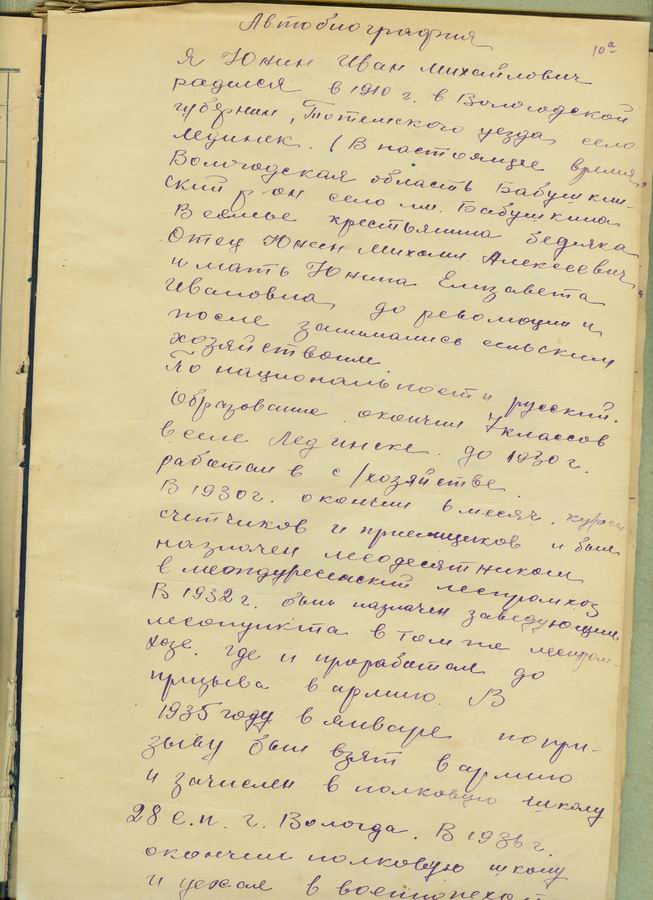 Автобиография
10а
Я Юнин Иван Михайлович
родился в 1910 г. в Вологодской
губернии, Тотемского уезда село
Лединск. (В настоящее время
Вологодская область Бабушкин-
ский р-он село им. Бабушкина
В семье крестьянина бедняка
Отец Юнин Михаил Алексеевич
и мать Юнина Елизавета
Ивановна до революции и
после занимались сельским
хозяйством
По национальности русский.
Образование окончил 7 классов
в селе Лединске. до 1930 г.
работал в с/хозяйстве.
В 1930 г. окончил 6 месяч. курсы
счетчиков и приемщиков и был
назначен лесодесятником
в леспромхоз
В 1932 г. был назначен заведующим
лесопункта в том же леспром-
хозе. где и проработал до
призыва в армию. В
1935 году в январе по при-
зыву был взят в армию
и зачислен в полковую школу
28 с.п. г. Вологда. В 1936 г.
окончил полковую школу
и уехал в